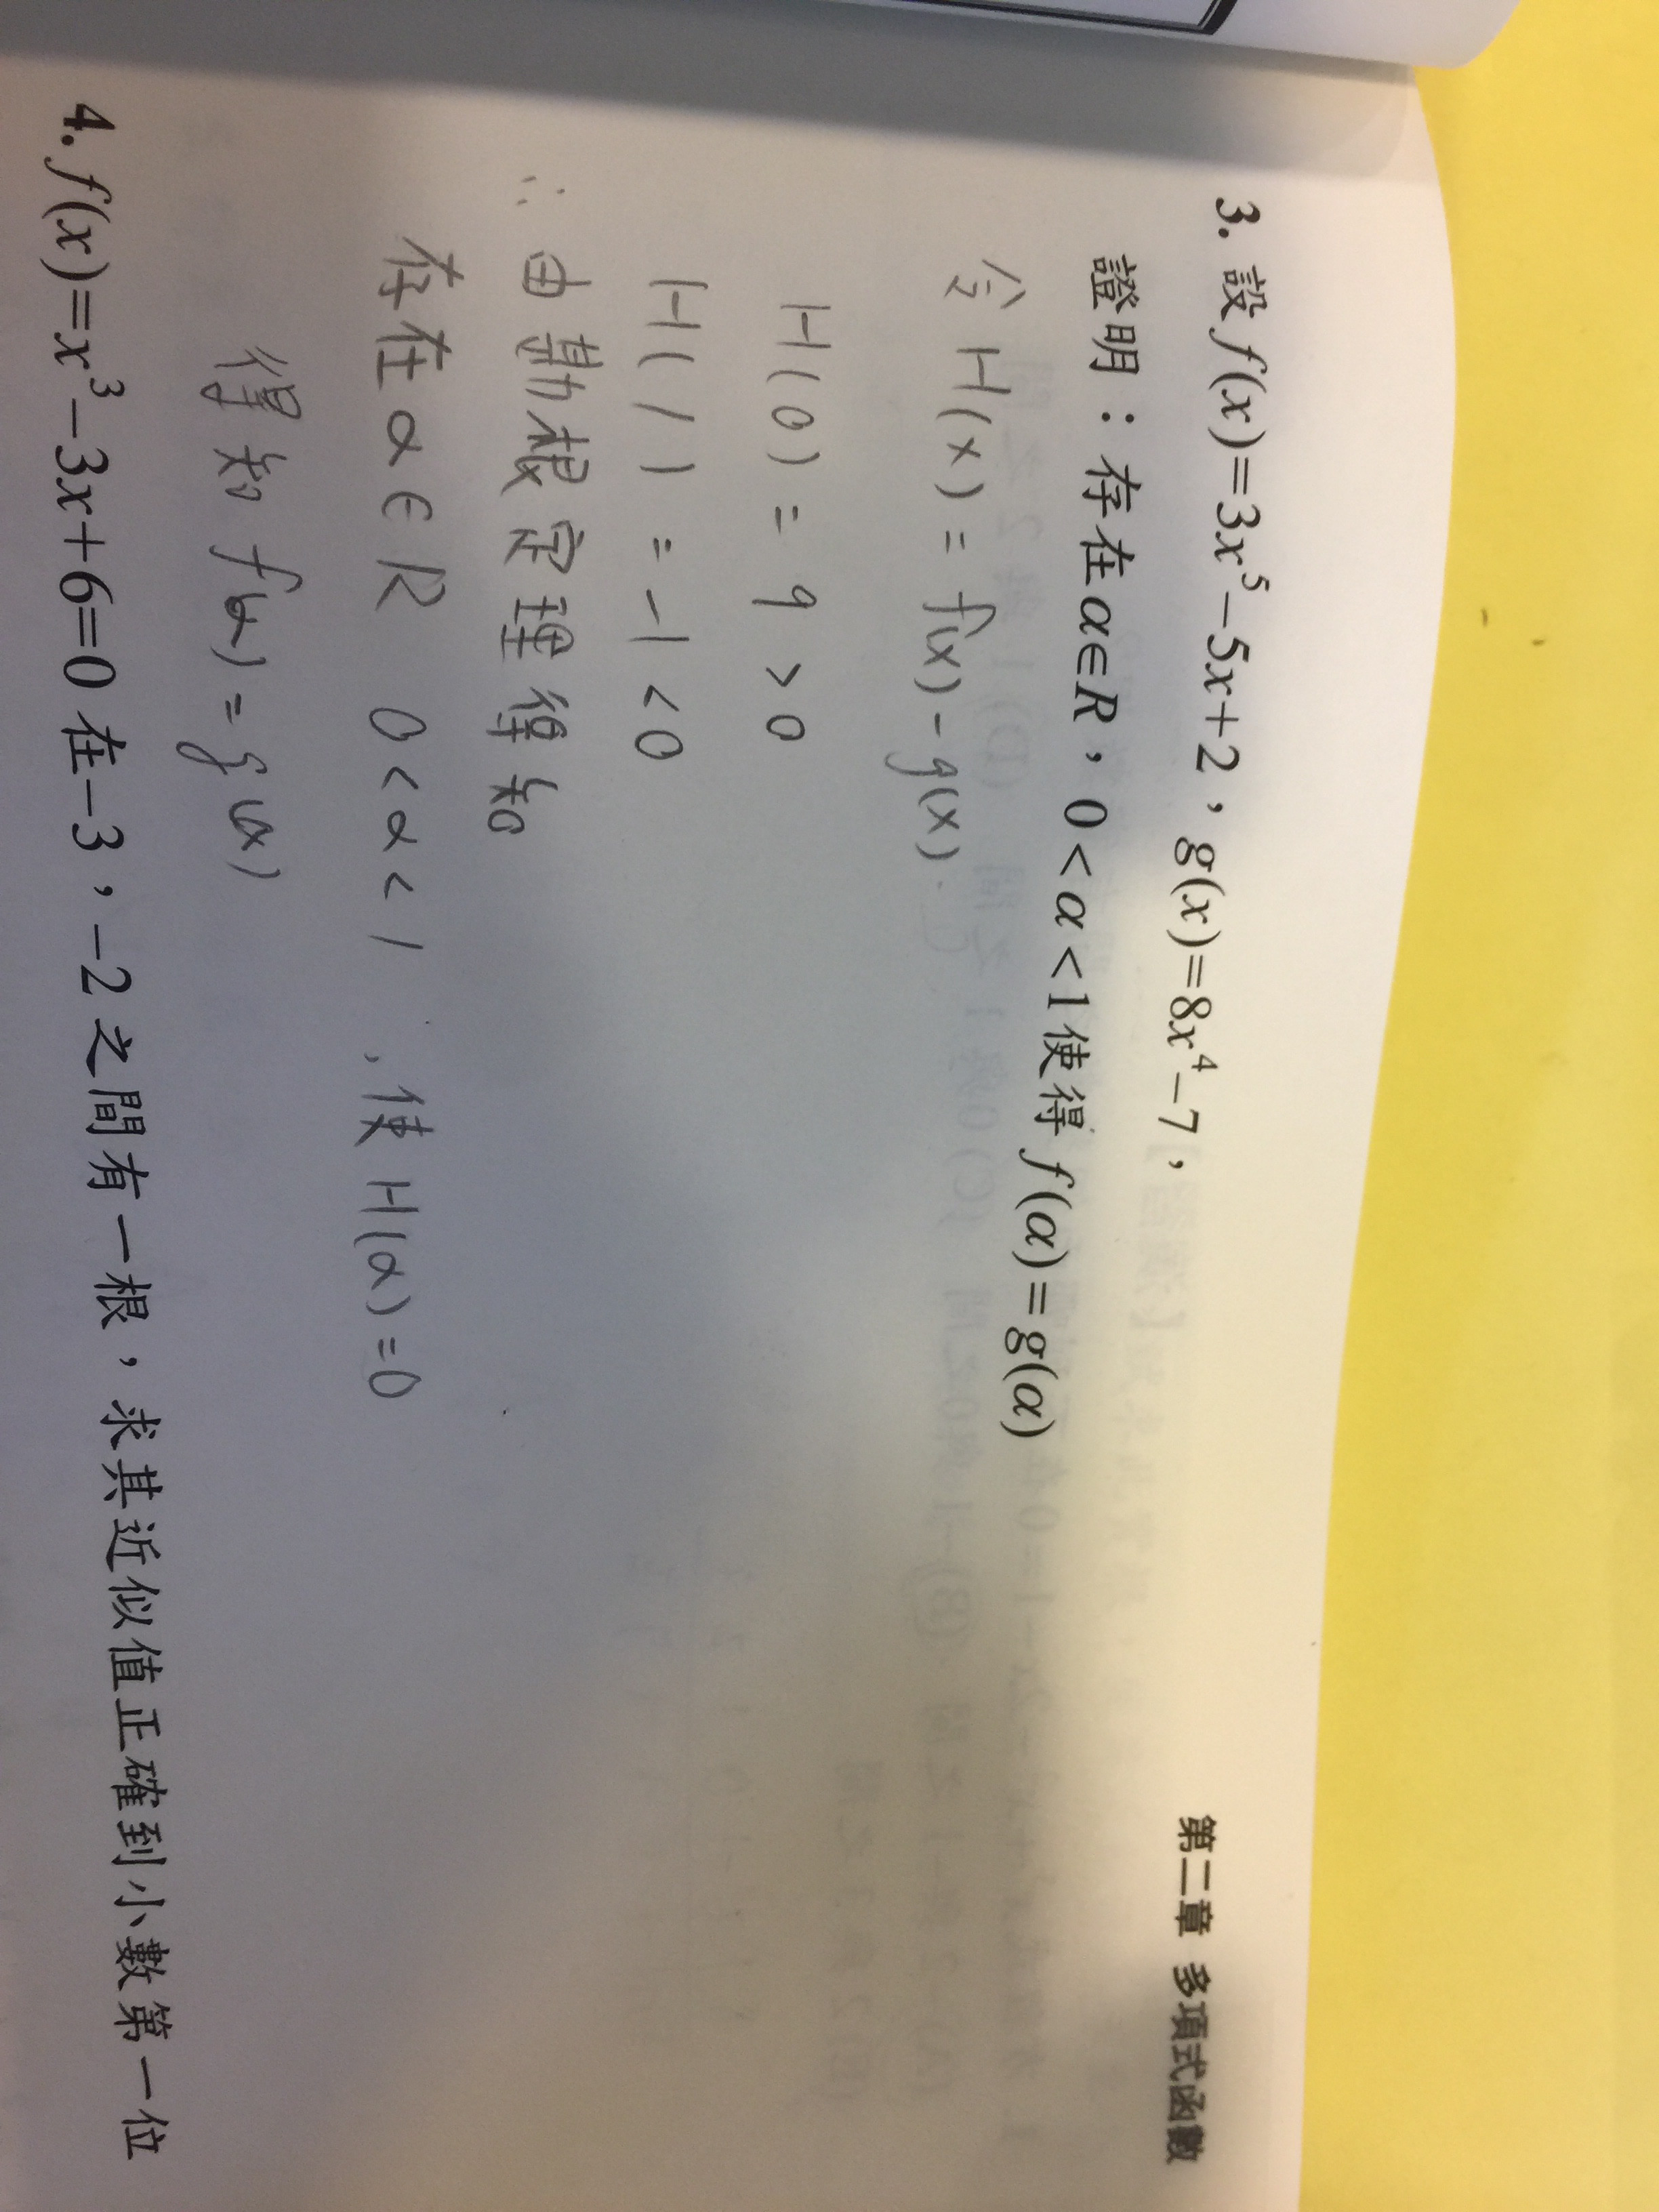 第二章 多項式函數
3. 設 f(x)=3x⁵−5x+2，g(x)=8x⁴−7，
證明：存在α∈R，0<α<1使得 f(α)=g(α)
令 H(x) = f(x) - g(x).
H(0) = 9 > 0
H(1) = -1 < 0
∴ 由勘根定理得知
存在 α∈R 0<α<1 , 使 H(α)=0
得知 f(α) = g(α)
4. f(x)=x³−3x+6=0 在−3，−2 之間有一根，求其近似值正確到小數第一位